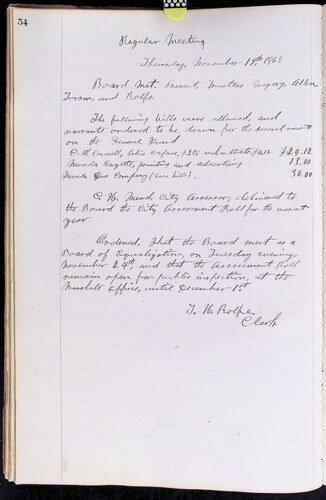 54
Regular Meeting
Thursday, November 19th 1869
Board Met. Present, Trustees Gregory, Allen
and Rolfe
The following bills were allowed, and
warrants ordered to be drawn for the several amounts
on the General Fund
Nevada Gazette, printing and advertising 13.00
Nevada Gas Company (Gas bills). 36.00
C. H. Mead, City Assessor, delivered to
the Board the City Assessment Roll for the current
year
Ordered, that the Board meet as a
Board of Equalization, on Tuesday evening,
November 24th, and that the Assessment Roll
remain open for public inspection, at the
Marshal's office, until December 1st
T. H. Rolfe,
Clerk